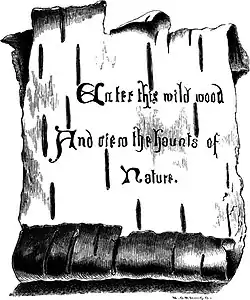 Enter this wild wood
And view the haunts of
Nature.